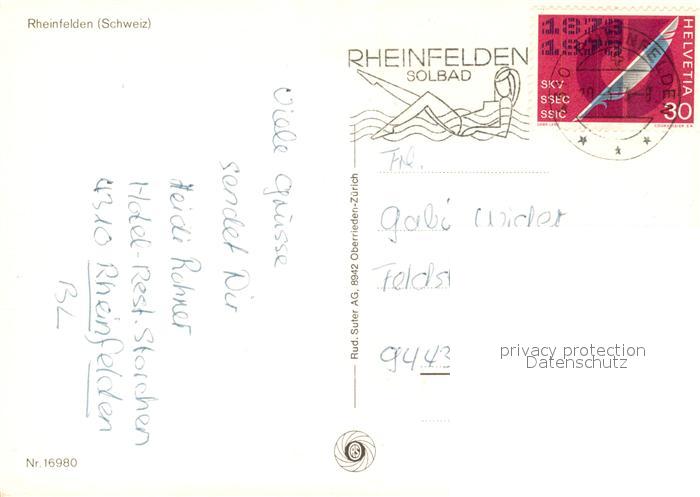 Rheinfelden (Schweiz)
RHEINFELDEN
SOLBAD
1873
1973
SKV
SSEC
SSIC
HELVETIA
30
COURVOISIER S.A.
Viele Grüsse
sendet Dir
Heidi Rohner
Hotel-Rest. Storchen
4310 Rheinfelden
BL
Rud. Suter AG, 8942 Oberrieden-Zürich
Frl.
Gabi Wider
Feldst
9443
privacy protection
Datenschutz
Nr. 16980